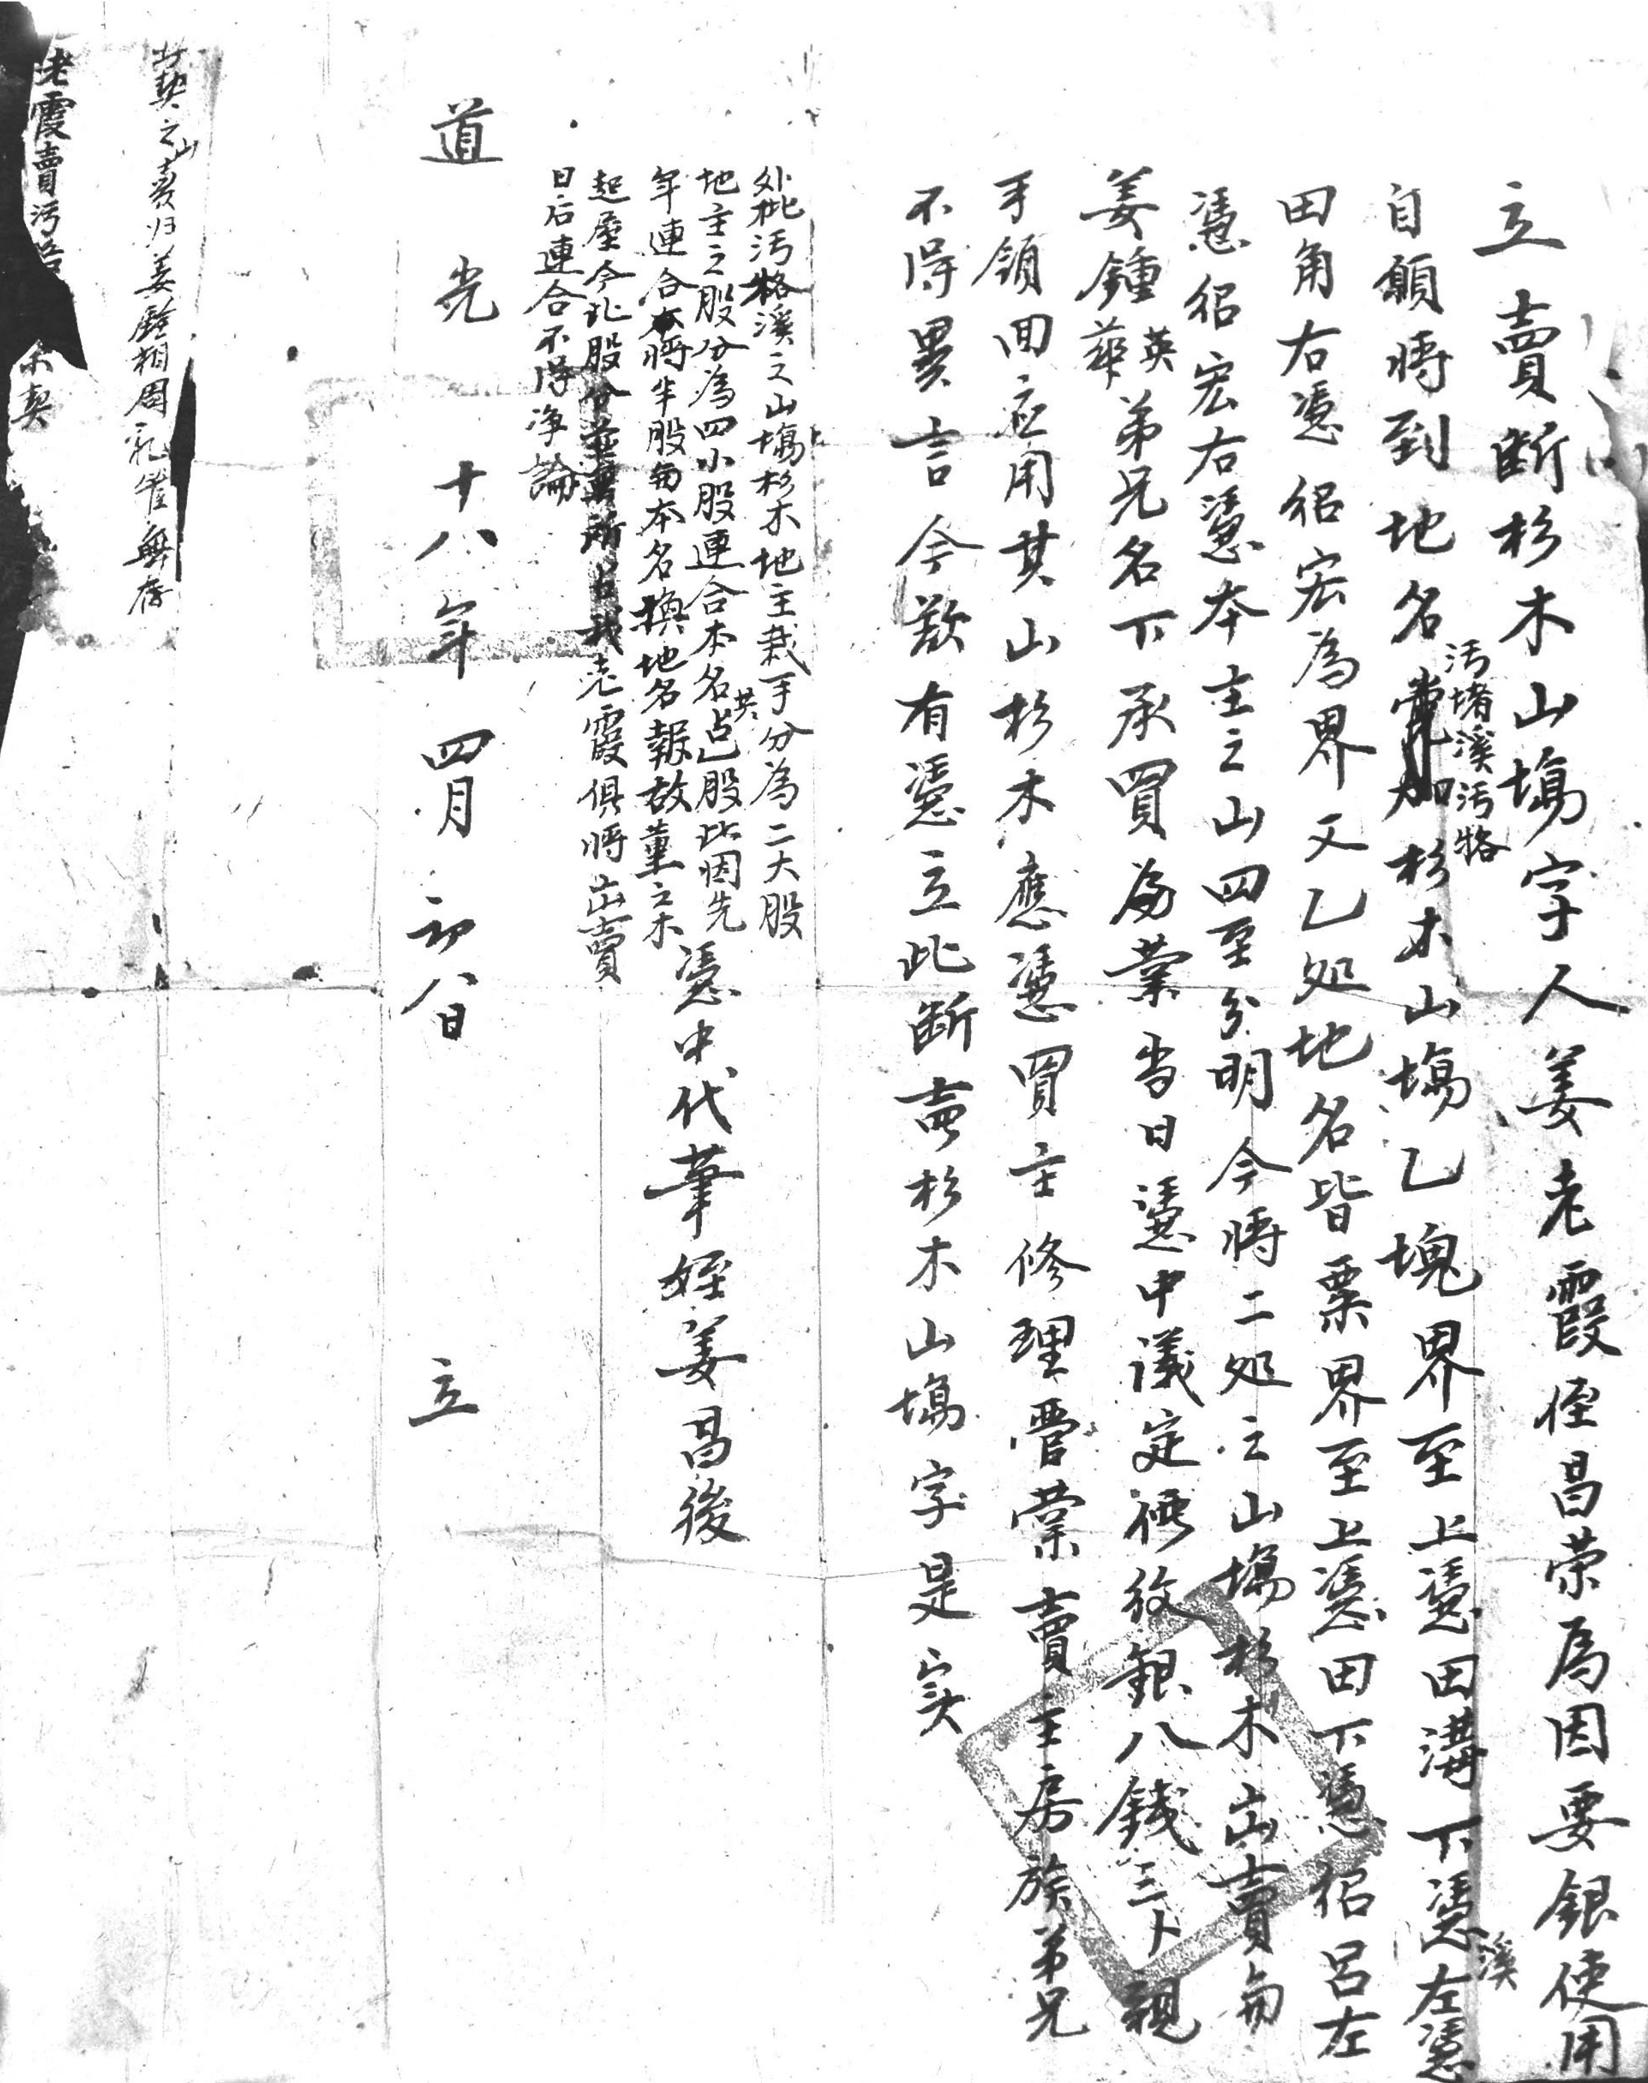 立賣斷杉木山塲字人姜老霞侄昌荣為因要銀使用
自願將到地名污堵溪污格杉木山塲乙塊界至上憑田溝下憑溪左憑
田角右憑紹宏為界又乙处地名皆粟界至上憑田下憑紹呂左
憑紹宏右憑本主之山四至分明今將二处之山塲杉木出賣與
姜鍾英華弟兄名下承買為業当日憑中議定價紋銀八錢三卜親
手領回应用其山杉木應憑買主修理管業賣主房族弟兄
不得異言今欲有憑立此斷賣杉木山塲字是实
外批污格溪之山塲杉木地主栽手分為二大股
地主之股分為四小股連合本名共占乙股此因先
年連合将半股與本名換地名報故董之木
起屋今此股分並無所占我老霞俱將出賣
日后連合不得净論
憑中代筆姪姜昌後
道光十八年四月初八日 立
此契之山賣归姜鍾相周礼催無存
老霞賣污